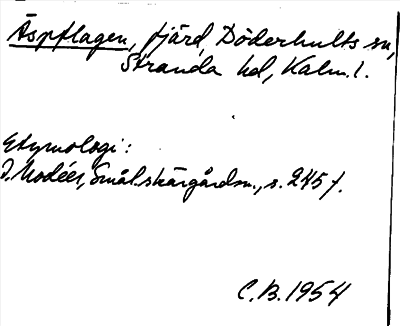 Äspflagen, fjärd, Döderhults sn,
Stranda hd, Kalm. l.
Etymologi:
I. Modéer, Smål. skärgårdsn., s. 245 f.
C.B. 1954